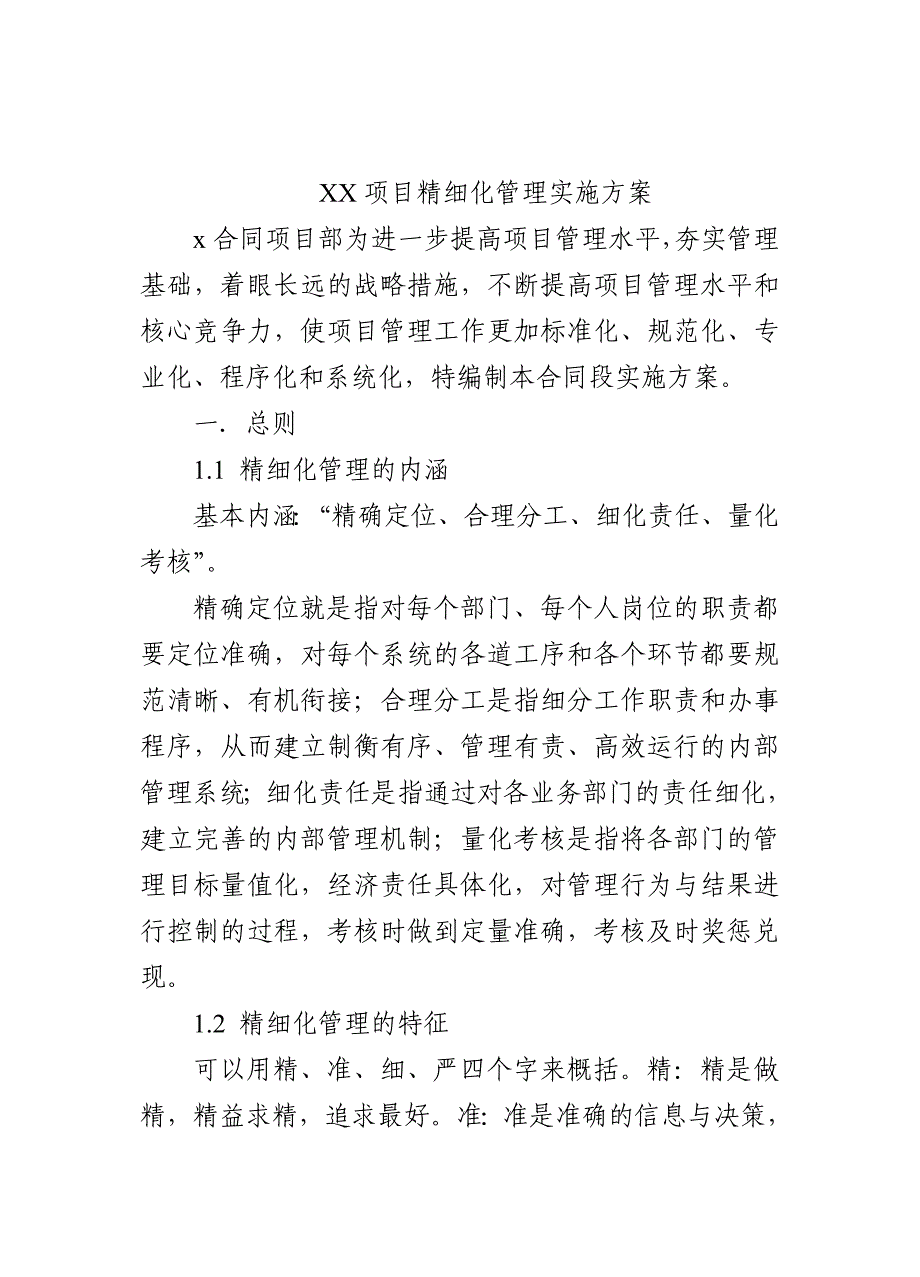 XX 项目精细化管理实施方案
x 合同项目部为进一步提高项目管理水平，夯实管理
基础，着眼长远的战略措施，不断提高项目管理水平和
核心竞争力，使项目管理工作更加标准化、规范化、专
业化、程序化和系统化，特编制本合同段实施方案。
一．总则
1.1 精细化管理的内涵
基本内涵：“精确定位、合理分工、细化责任、量化
考核”。
精确定位就是指对每个部门、每个人岗位的职责都
要定位准确，对每个系统的各道工序和各个环节都要规
范清晰、有机衔接；合理分工是指细分工作职责和办事
程序，从而建立制衡有序、管理有责、高效运行的内部
管理系统；细化责任是指通过对各业务部门的责任细化，
建立完善的内部管理机制；量化考核是指将各部门的管
理目标量值化，经济责任具体化，对管理行为与结果进
行控制的过程，考核时做到定量准确，考核及时奖惩兑
现。
1.2 精细化管理的特征
可以用精、准、细、严四个字来概括。精：精是做
精，精益求精，追求最好。准：准是准确的信息与决策，